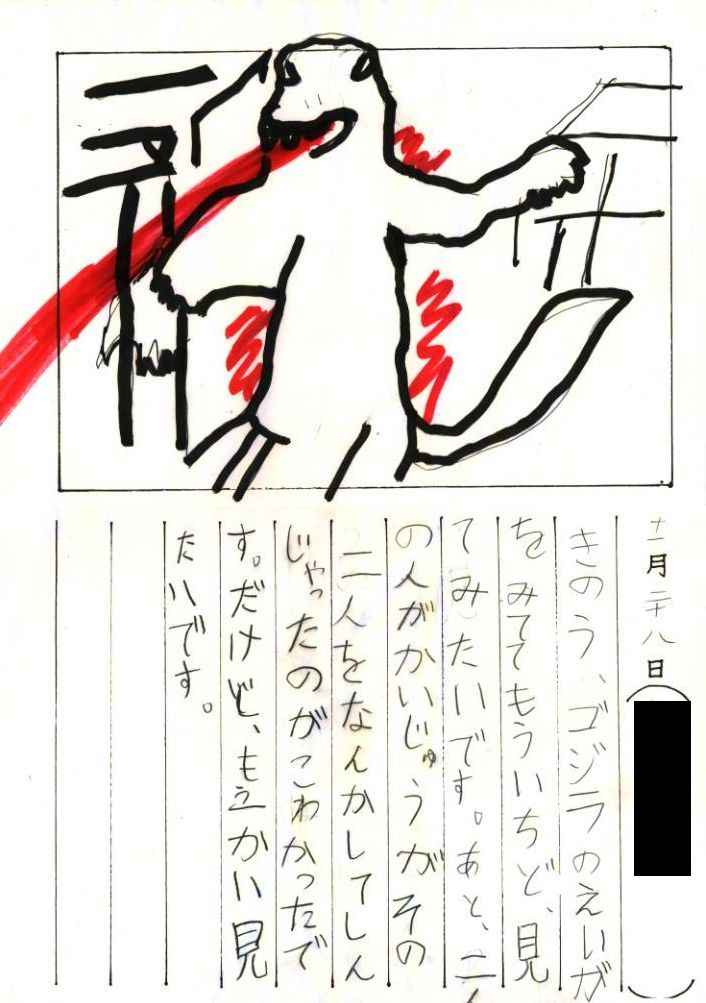 十二月二十八日
きのう、ゴジラのえいが
をみててもういちど、見
てみたいです。あと、二人
の人がかいじゅうがその
二人をなんかしてしん
じゃったのがこわかったで
す。だけど、もう一かい見
たいです。